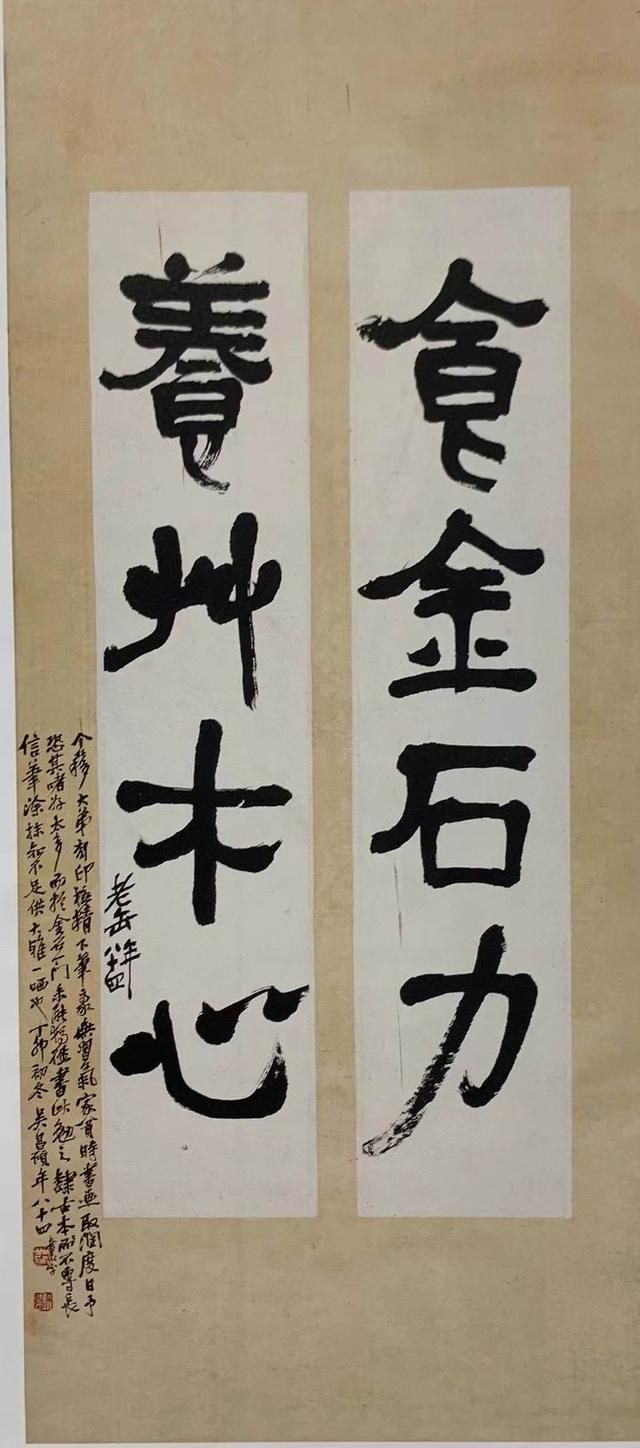 食金石力
養艸木心
老缶年八十四
个簃大弟刻印極精下筆豪無習氣家貧時書画取潤度日予
恐其嗜好太多而於金石一門未能書此勉之隸古本所不專長
信筆塗抹知不足供大雅一哂也丁卯初冬吳昌碩年八十四